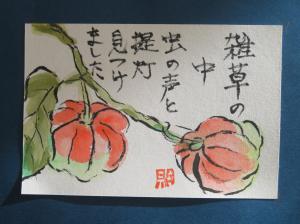 雑草の
中
虫の声と
提灯
見つけ
ました